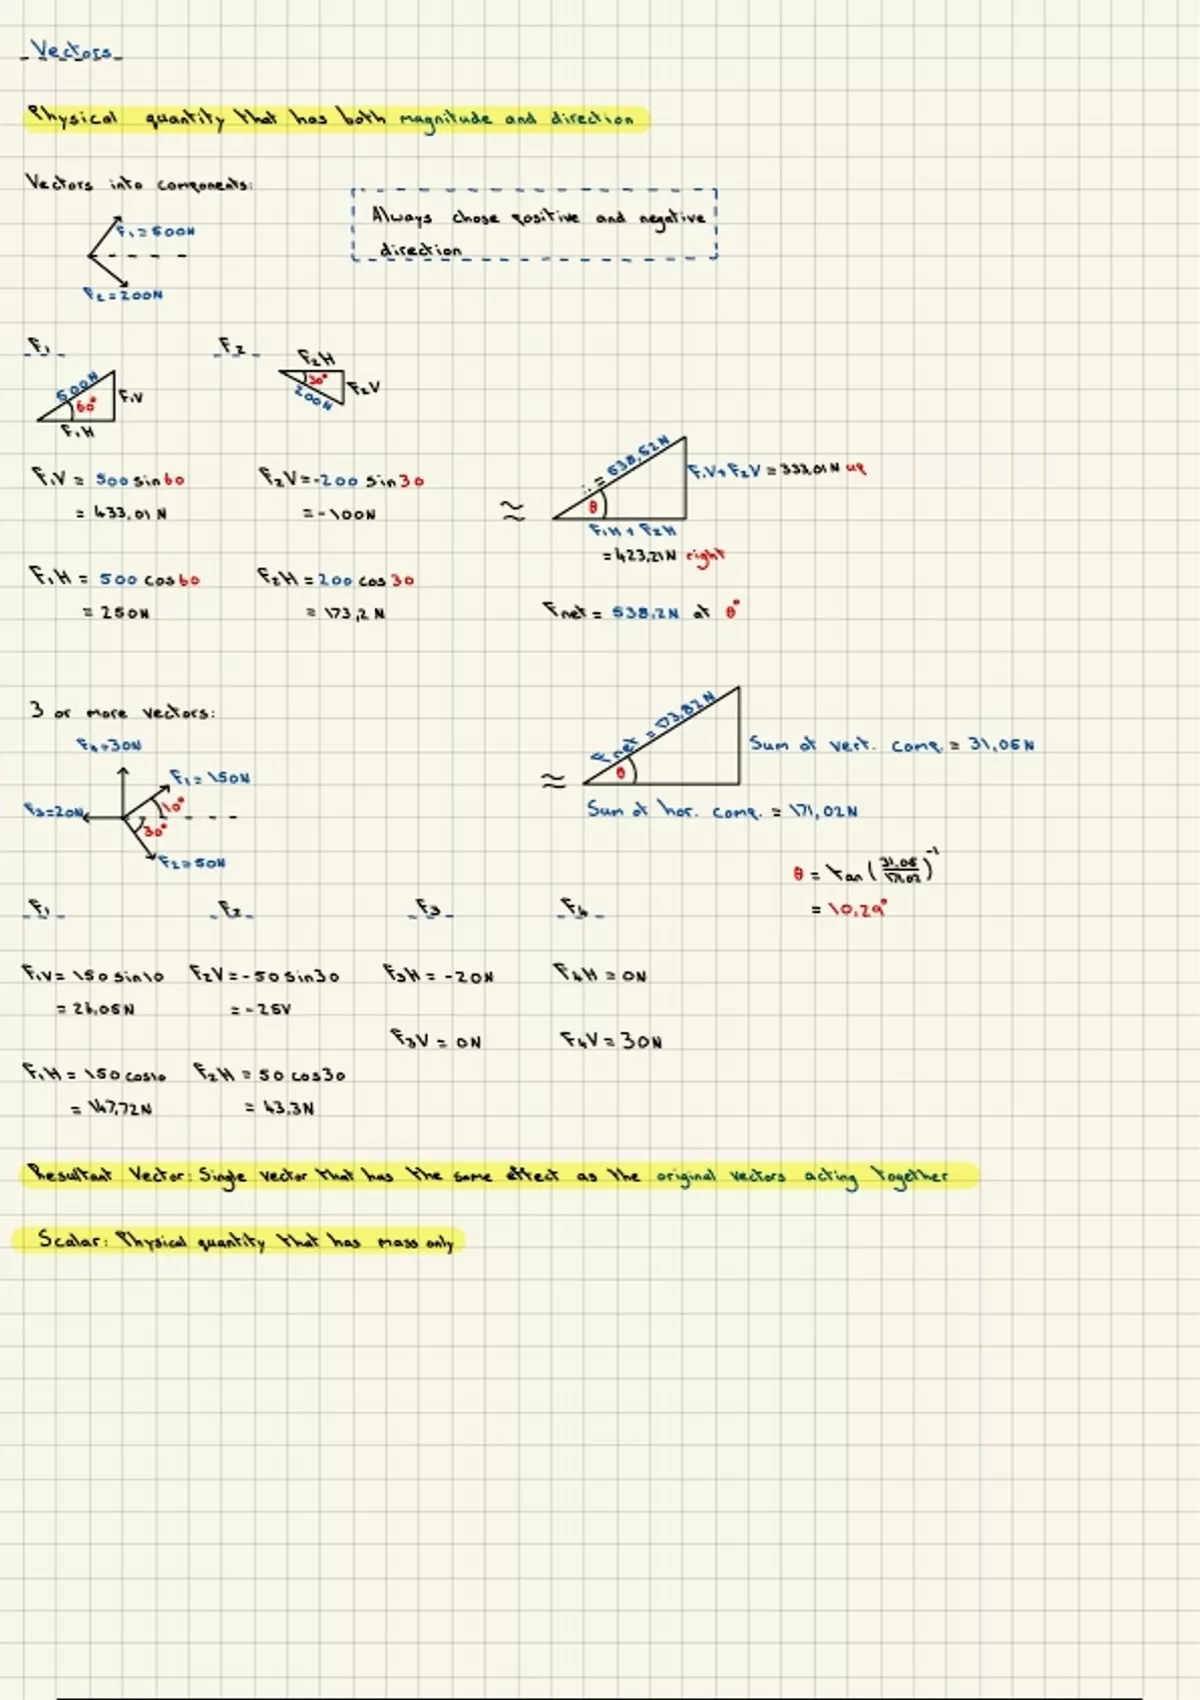 Vectors
Physical quantity that has both magnitude and direction
Vectors into components:
Always chose positive and negative
direction
F₁ = 500N
F₂ = 200N
F₁
F₂
500N
60°
F₁V
F₁H
F₂H
30°
200N
F₂V
F₁V = 500 sin 60
= 433,01 N
F₂V = -200 sin 30
= -100N
F₁H = 500 cos 60
= 250N
F₂H = 200 cos 30
= 173,2 N
≈
∴ = 538,52N
θ
F₁V + F₂V = 333,01N up
F₁H + F₂H
= 423,21N right
Fnet = 538,2N at θ°
3 or more vectors:
F₄ = 30N
F₁ = 150N
10°
F₃ = 20N
30°
F₂ = 50N
≈
Fnet = 173,82N
θ
Sum of vert. comp. = 31,05N
Sum of hor. comp. = 171,02N
θ = tan (31,05/171,02)⁻¹
= 10,29°
F₁
F₂
F₃
F₄
F₁V = 150 sin10
= 26,05N
F₂V = -50 sin30
= -25V
F₃H = -20N
F₄H = 0N
F₃V = 0N
F₄V = 30N
F₁H = 150 cos10
= 147,72N
F₂H = 50 cos30
= 43,3N
Resultant Vector: Single vector that has the same effect as the original vectors acting together
Scalar: Physical quantity that has mass only